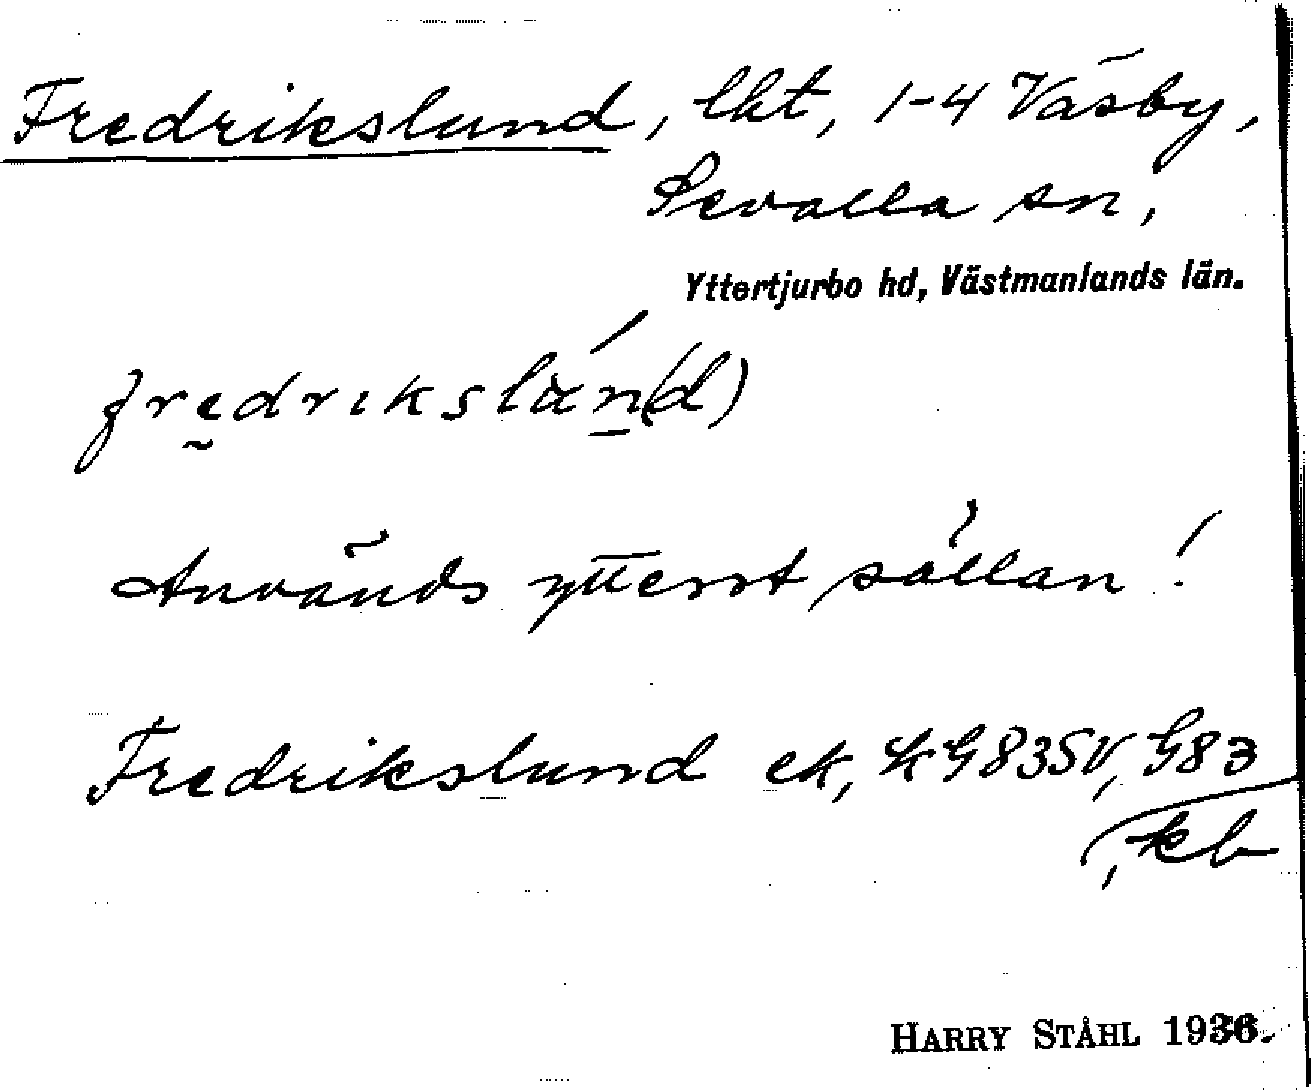 Fredrikslund, lht, 1-4 Väsby,
Sevalla sn,
Yttertjurbo hd, Västmanlands län.
fredrikslán(d)
Används ytterst sällan!
Fredrikslund ek, GSV, G83
, kb
HARRY STÅHL 1936.